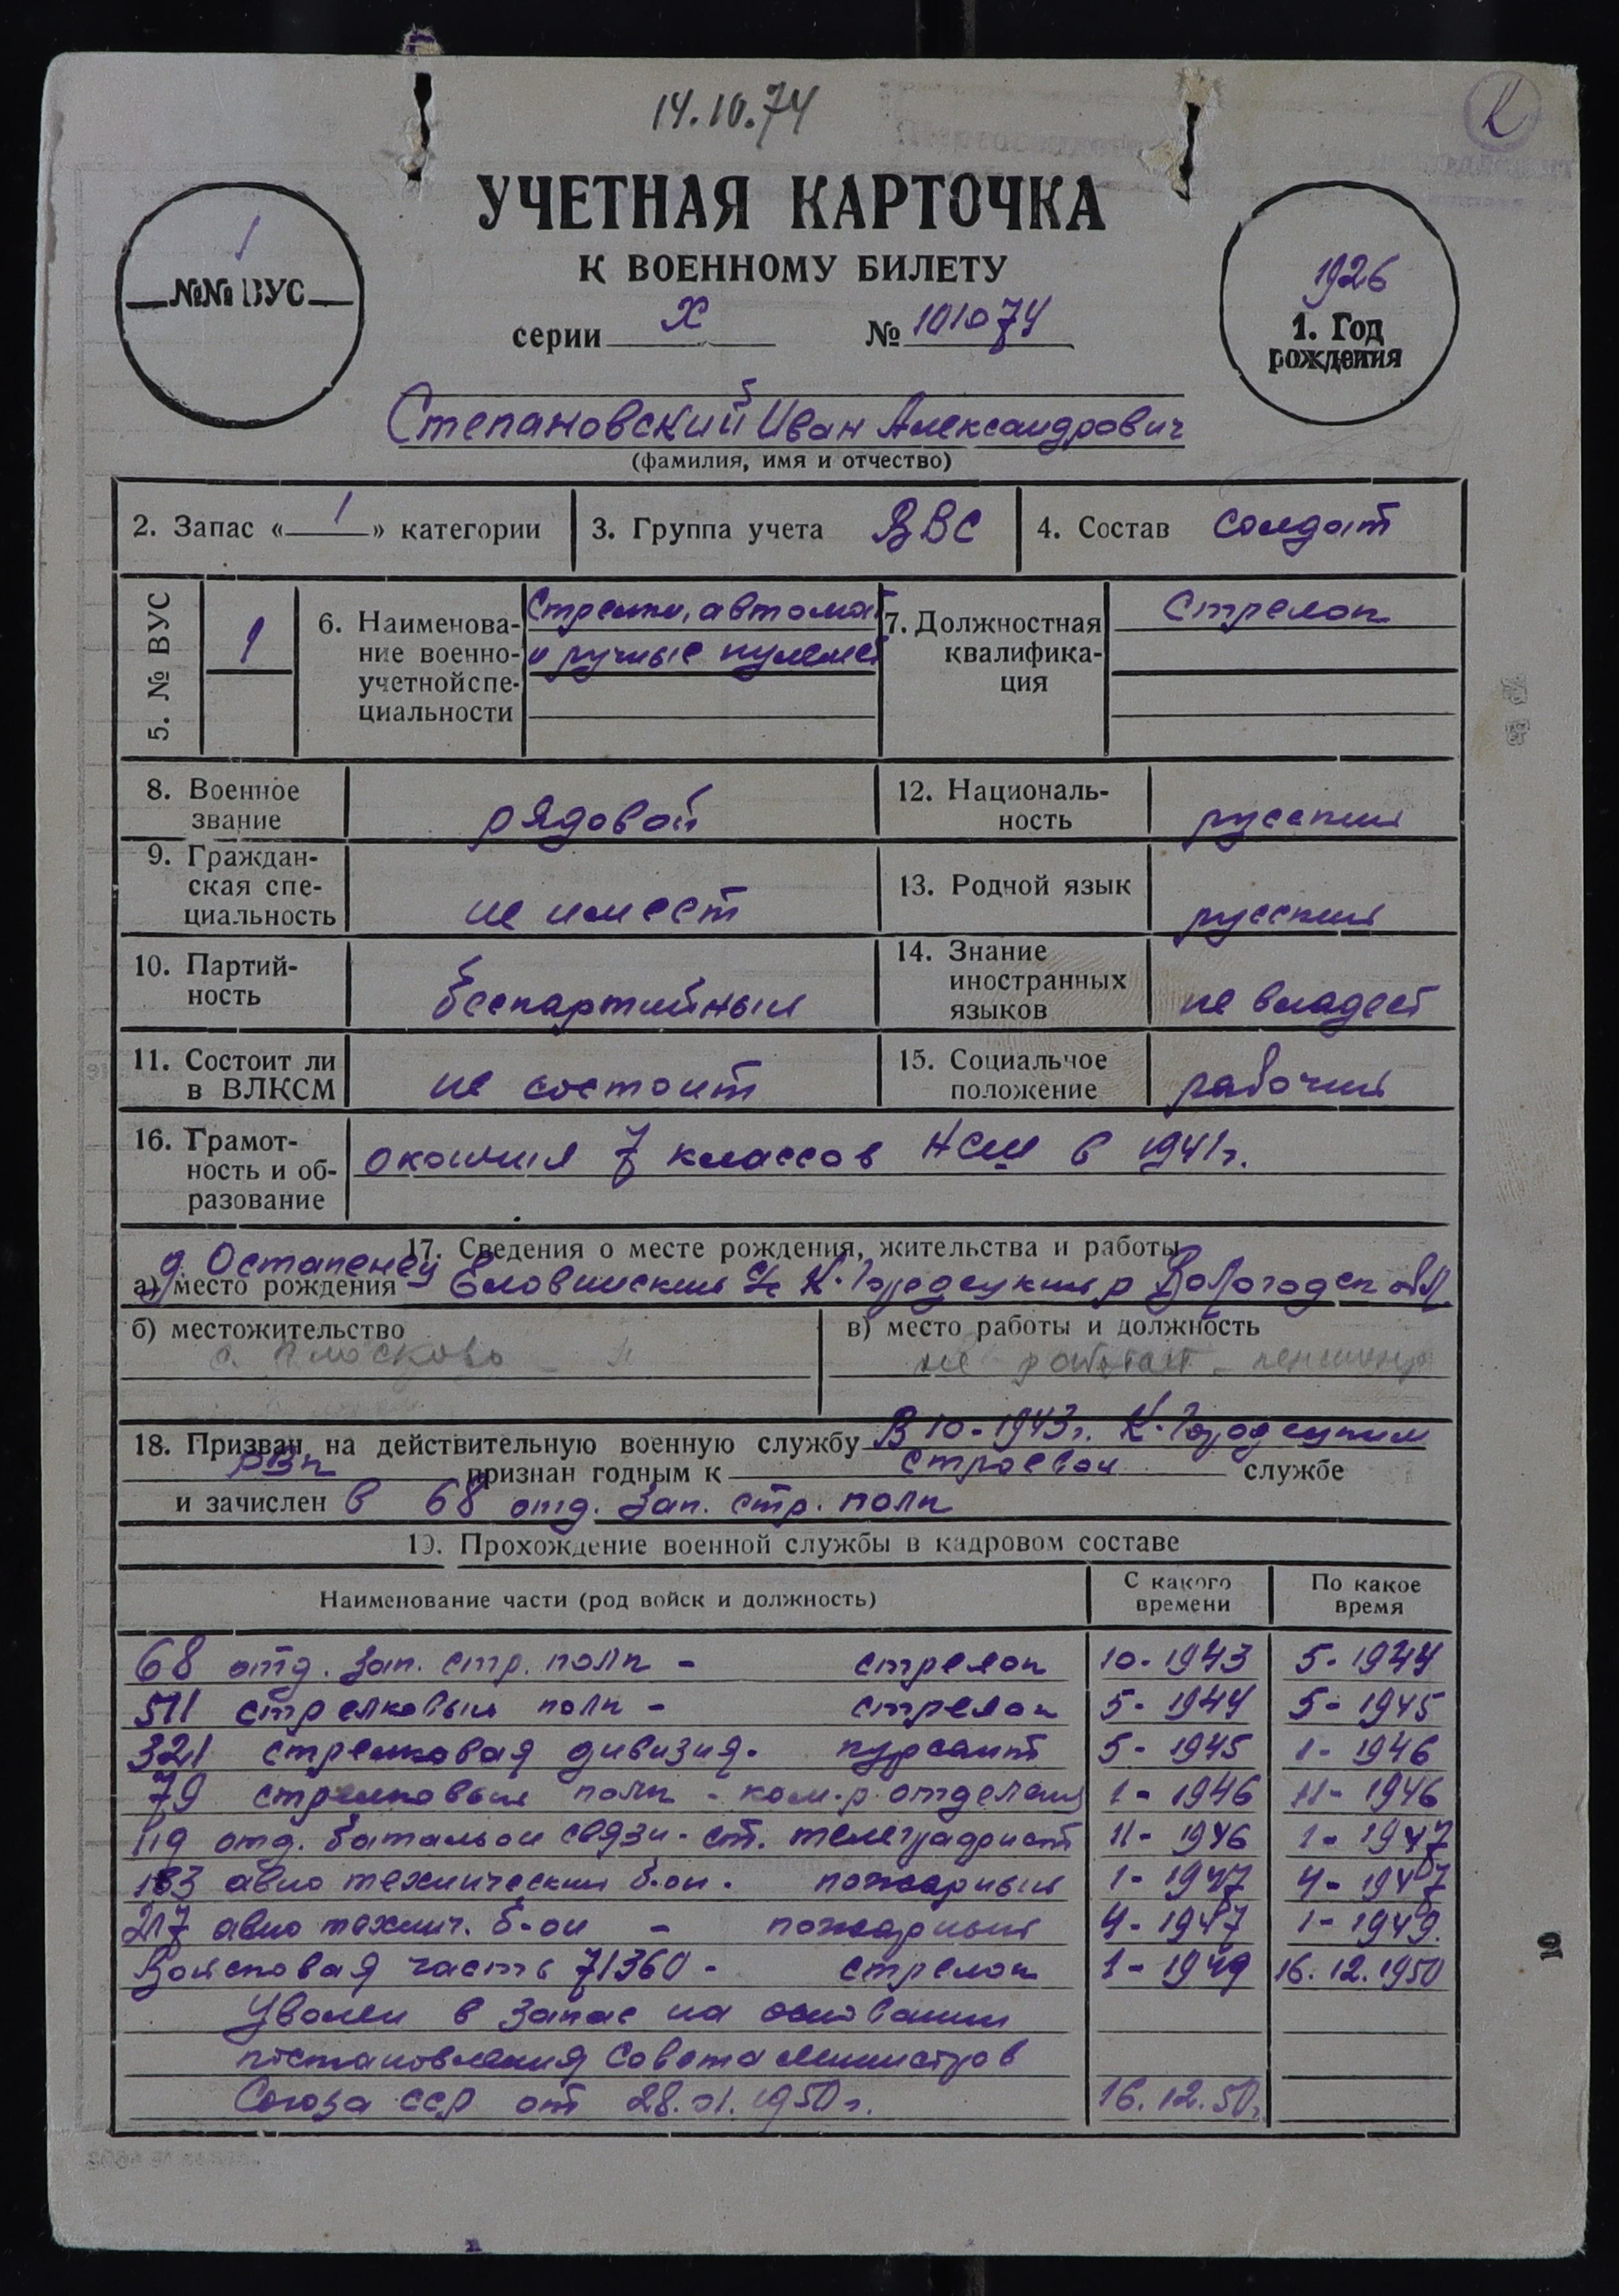 14.10.74
К
УЧЕТНАЯ КАРТОЧКА
К ВОЕННОМУ БИЛЕТУ
серии X № 101074
1
№№ ВУС
1926
1. Год
рождения
Степановский Иван Александрович
(фамилия, имя и отчество)
2. Запас «1» категории
3. Группа учета ВВС
4. Состав солдат
5. № ВУС
1
6. Наименова-
ние военно-
учетной спе-
циальности
Стрелки, автомат
и ручные пулемет
7. Должностная
квалифика-
ция
Стрелок
8. Военное
звание
рядовой
12. Националь-
ность
русский
9. Граждан-
ская спе-
циальность
не имеет
13. Родной язык
русский
10. Партий-
ность
беспартийный
14. Знание
иностранных
языков
не владеет
11. Состоит ли
в ВЛКСМ
не состоит
15. Социальное
положение
рабочий
16. Грамот-
ность и об-
разование
окончил 7 классов НСШ в 1941г.
17. Сведения о месте рождения, жительства и работы
д. Остапенец
а) место рождения Еловинский с/с К-Городецкий р Вологодск обл
б) местожительство
с. Плосково
в) место работы и должность
не работает - пенсионер
18. Призван на действительную военную службу В 10-1943г. К-Городецким
РВК признан годным к строевой службе
и зачислен в 68 отд. зап. стр. полк
19. Прохождение военной службы в кадровом составе
Наименование части (род войск и должность)
С какого
времени
По какое
время
68 отд. зап. стр. полк - стрелок 10-1943 5-1944
511 стрелковый полк - стрелок 5-1944 5-1945
321 стрелковая дивизия- курсант 5-1945 1-1946
79 стрелковый полк - ком-р отделения 1-1946 11-1946
119 отд. батальон связи - ст. телеграфист 11-1946 1-1947
183 авио технический б-он - пожарный 1-1947 4-1947
217 авио технич. б-он - пожарный 4-1947 1-1949.
Войсковая часть 71360 - стрелок 1-1949 16.12.1950
Уволен в запас на основании
постановления Совета Министров
Союза ССР от 28.01.1950г. 16.12.50г.
10